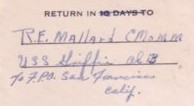 RETURN IN 10 DAYS TO
R.E. Mallard CMoMM
USS Griffin
To F.P.O. San Francisco
Calif.